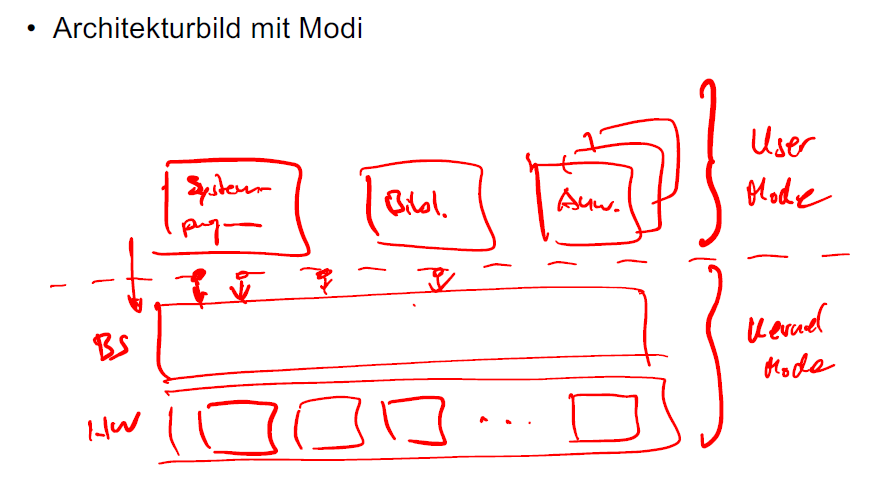 • Architekturbild mit Modi
System-
prog
Bibl.
Anw.
User
Mode
BS
Kernel
Mode
HW
...